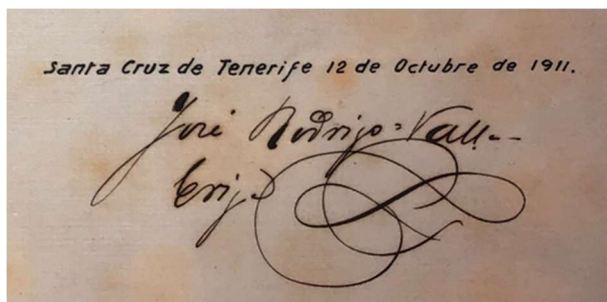 Santa Cruz de Tenerife 12 de Octubre de 1911.
José Rodrigo=Vall-